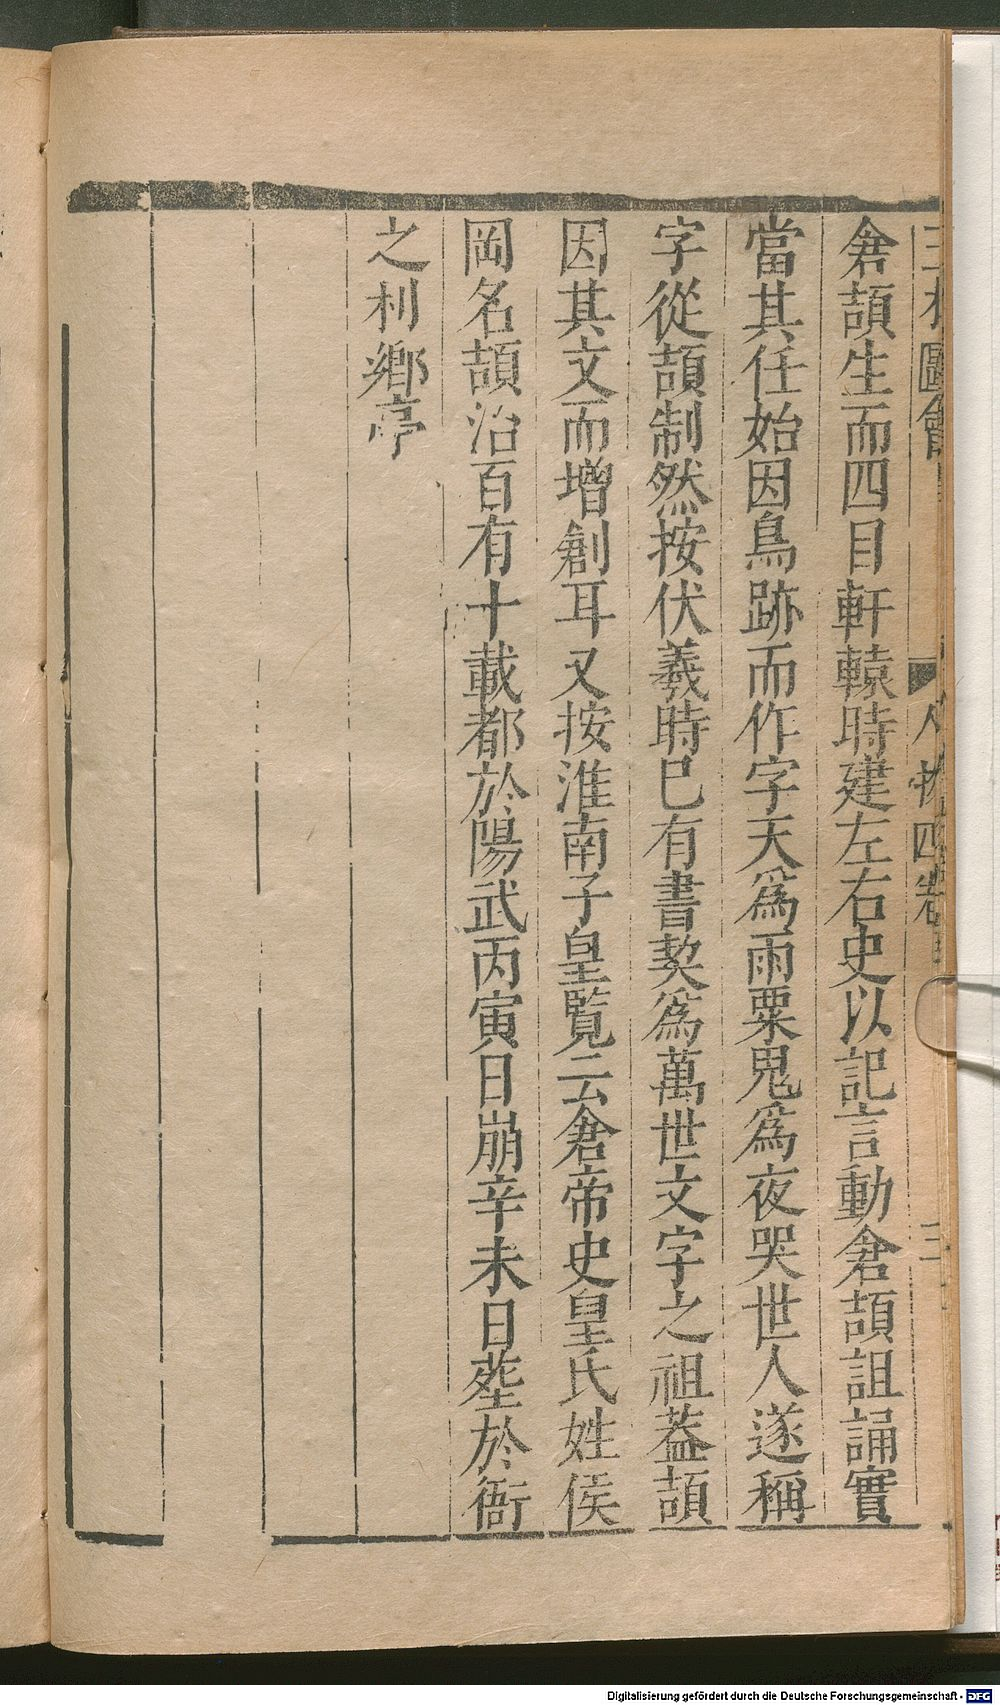 三才圖會 人物四卷 三
倉頡生而四目軒轅時建左右史以記言動倉頡詛誦實
當其任始因鳥跡而作字天爲雨粟鬼爲夜哭世人遂稱
字從頡制然按伏羲時巳有書契爲萬世文字之祖葢頡
因其文而增創耳又按淮南子皇覧云倉帝史皇氏姓侯
岡名頡治百有十載都於陽武丙寅日崩辛未日塟於衙
之利鄉亭
Digitalisierung gefördert durch die Deutsche Forschungsgemeinschaft - DFG